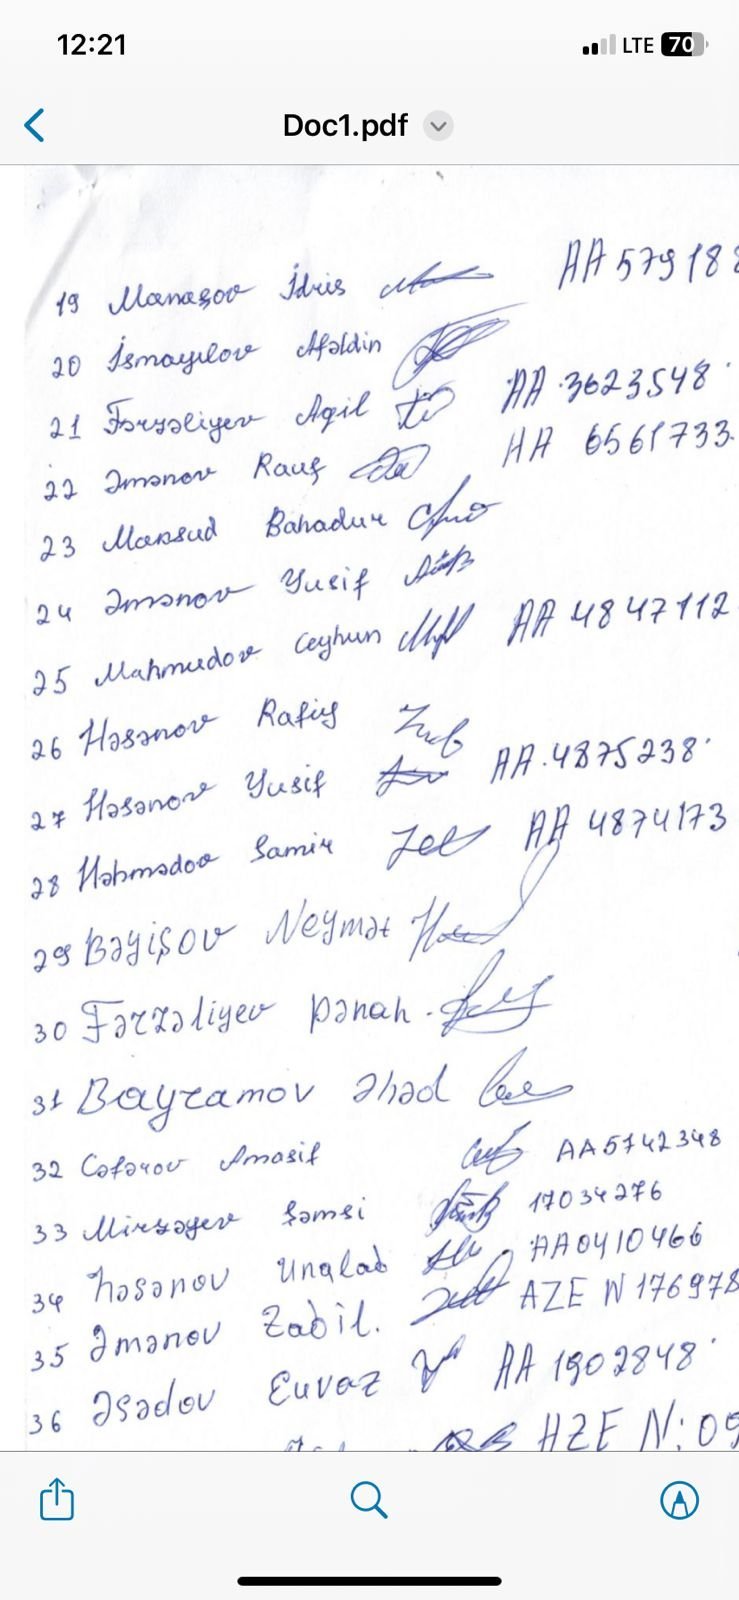 12:21
LTE 70
Doc1.pdf
19 Manaşov İdris AA 579188
20 İsmayılov Afəldin
21 Fərzəliyev Aqil AA 3623548
22 Əmənov Rauf AA 6561733
23 Maksud Bahadur
24 Əmənov Yusif
25 Mahmudov Ceyhun AA 4847112
26 Həsənov Rafiq
27 Həsənov Yusif AA 4875238
28 Həhmədov Samir AA 4874173
29 Bəyişov Neymət
30 Fərzəliyev Pənah
31 Bayramov Əhəd
32 Cəfərov Amasif AA5742348
33 Mirzəyev Şəmsi 17034276
34 həsənov AA0410466
35 Əmənov Zabil. AZE N 176978
36 Əsədov Euvaz AA 1902848
AZE N: 09